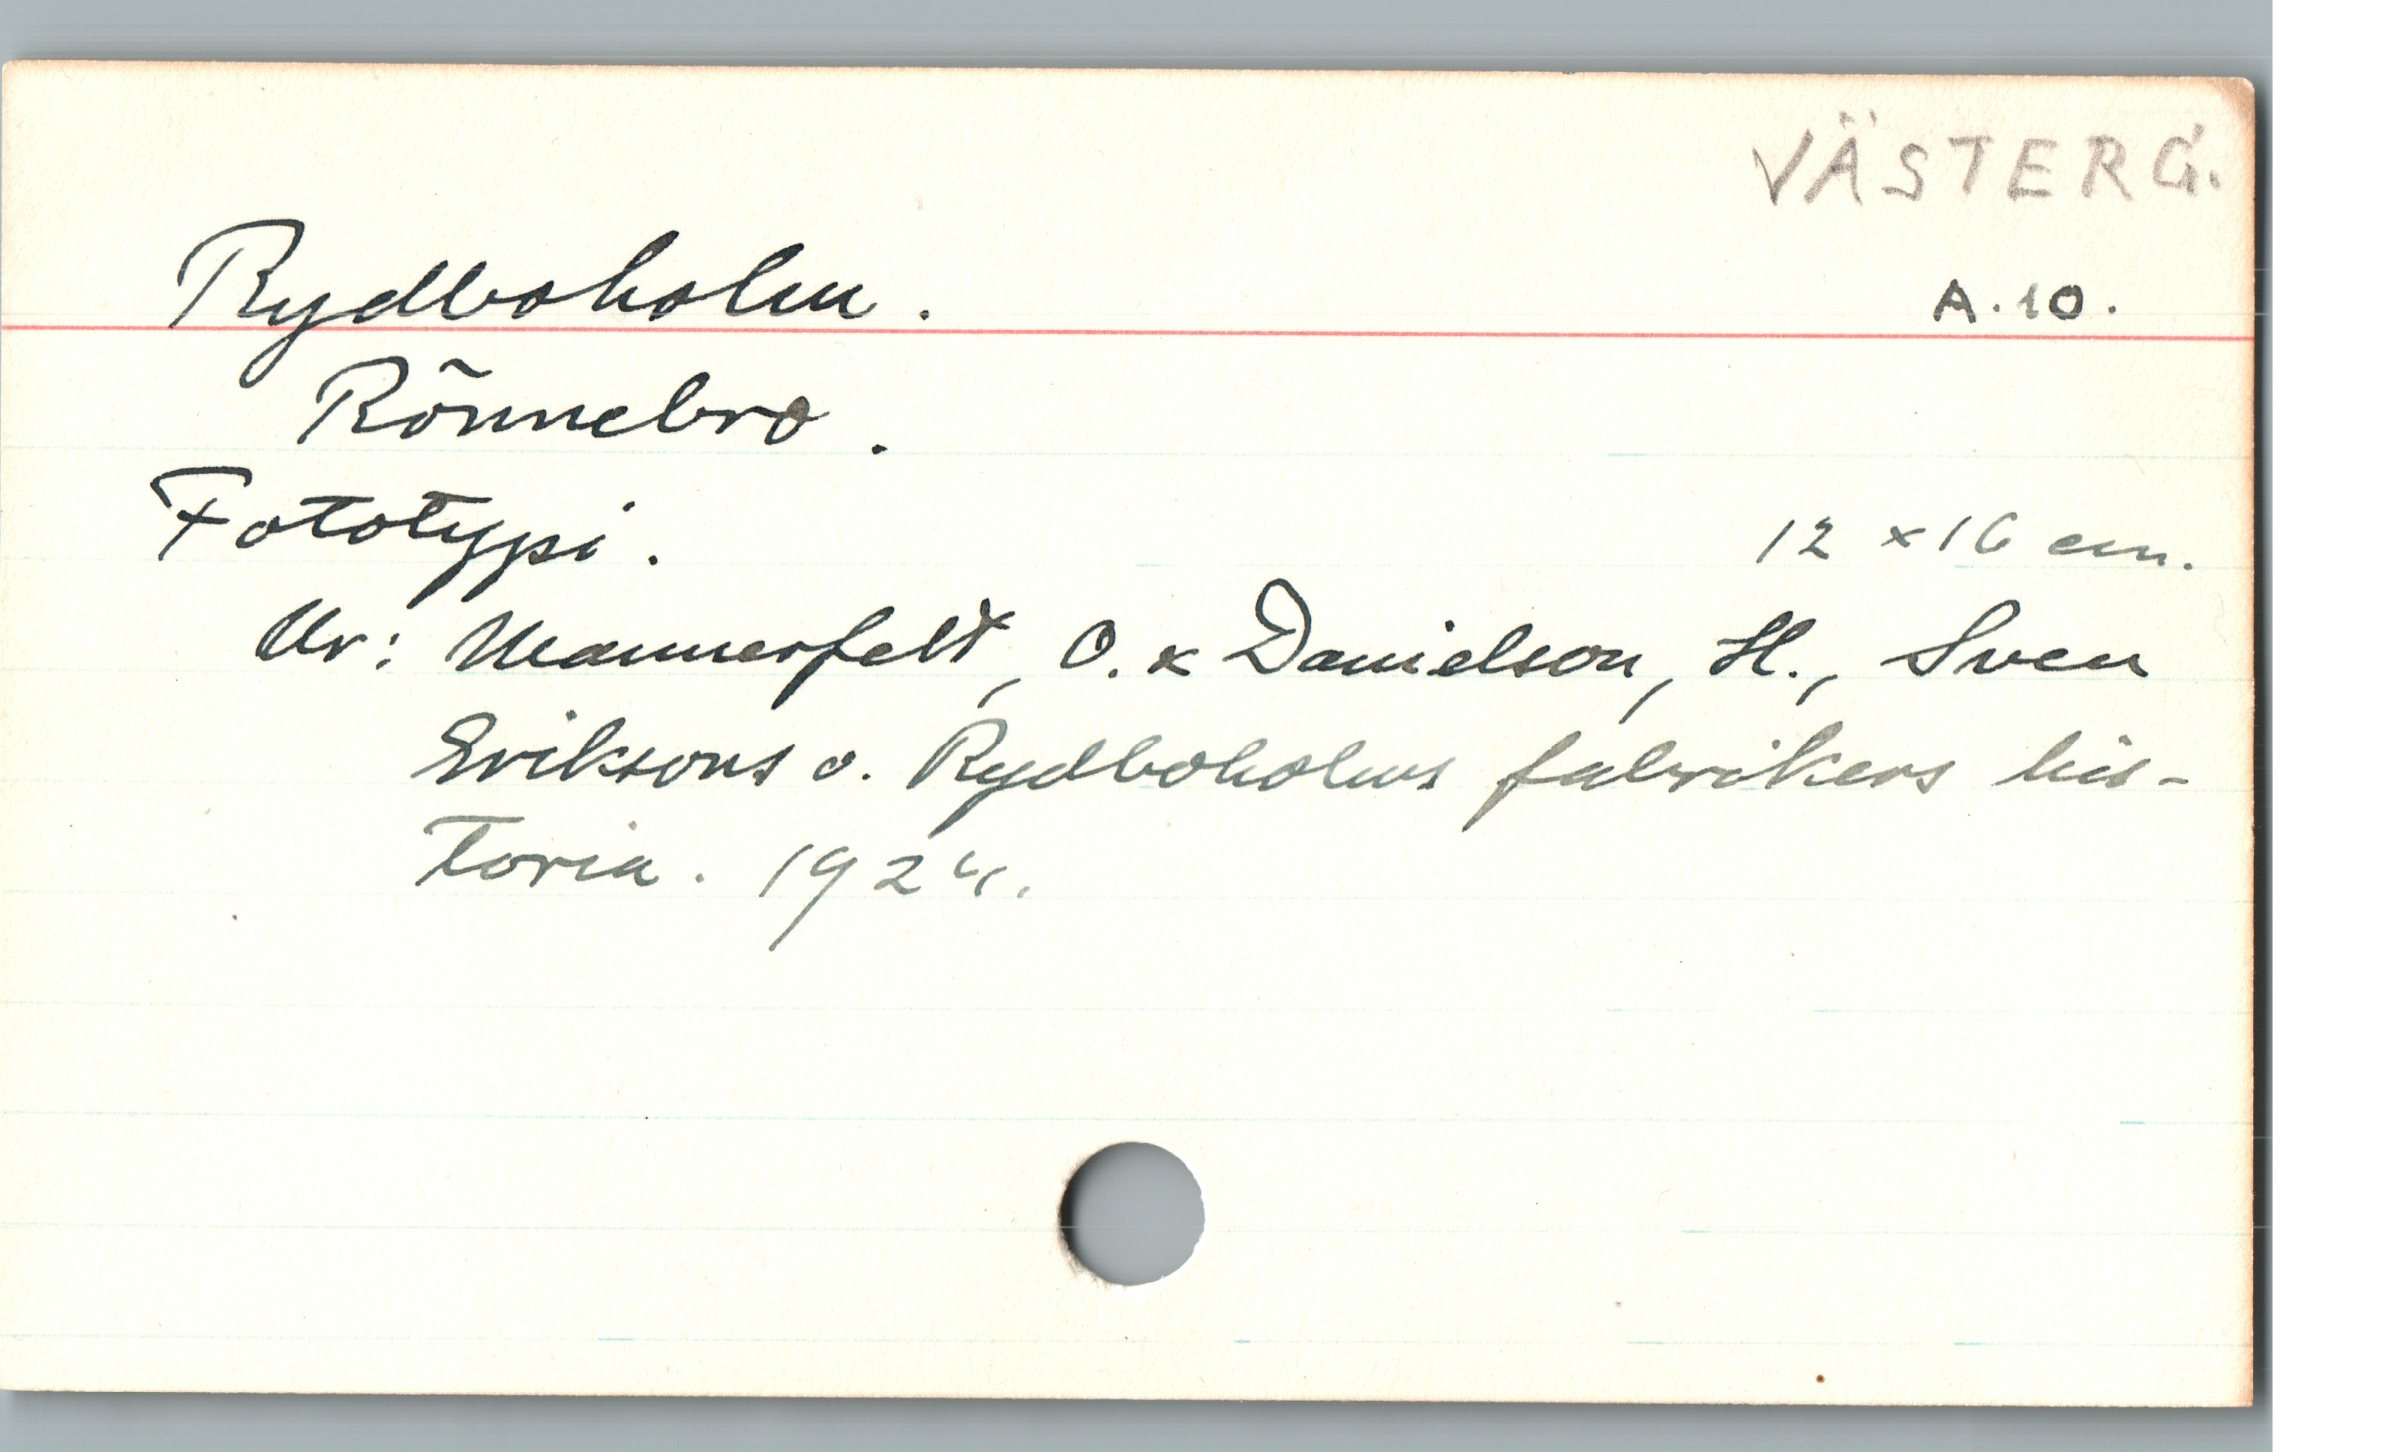 VÄSTERG.
Rydboholm.
A.10.
Rönnebro.
Fototypi.
12 x 16 cm.
Ur: Mannerfelt, O. & Danielson, H., Sven
Eriksons o. Rydboholms fabrikers his-
toria. 1924.